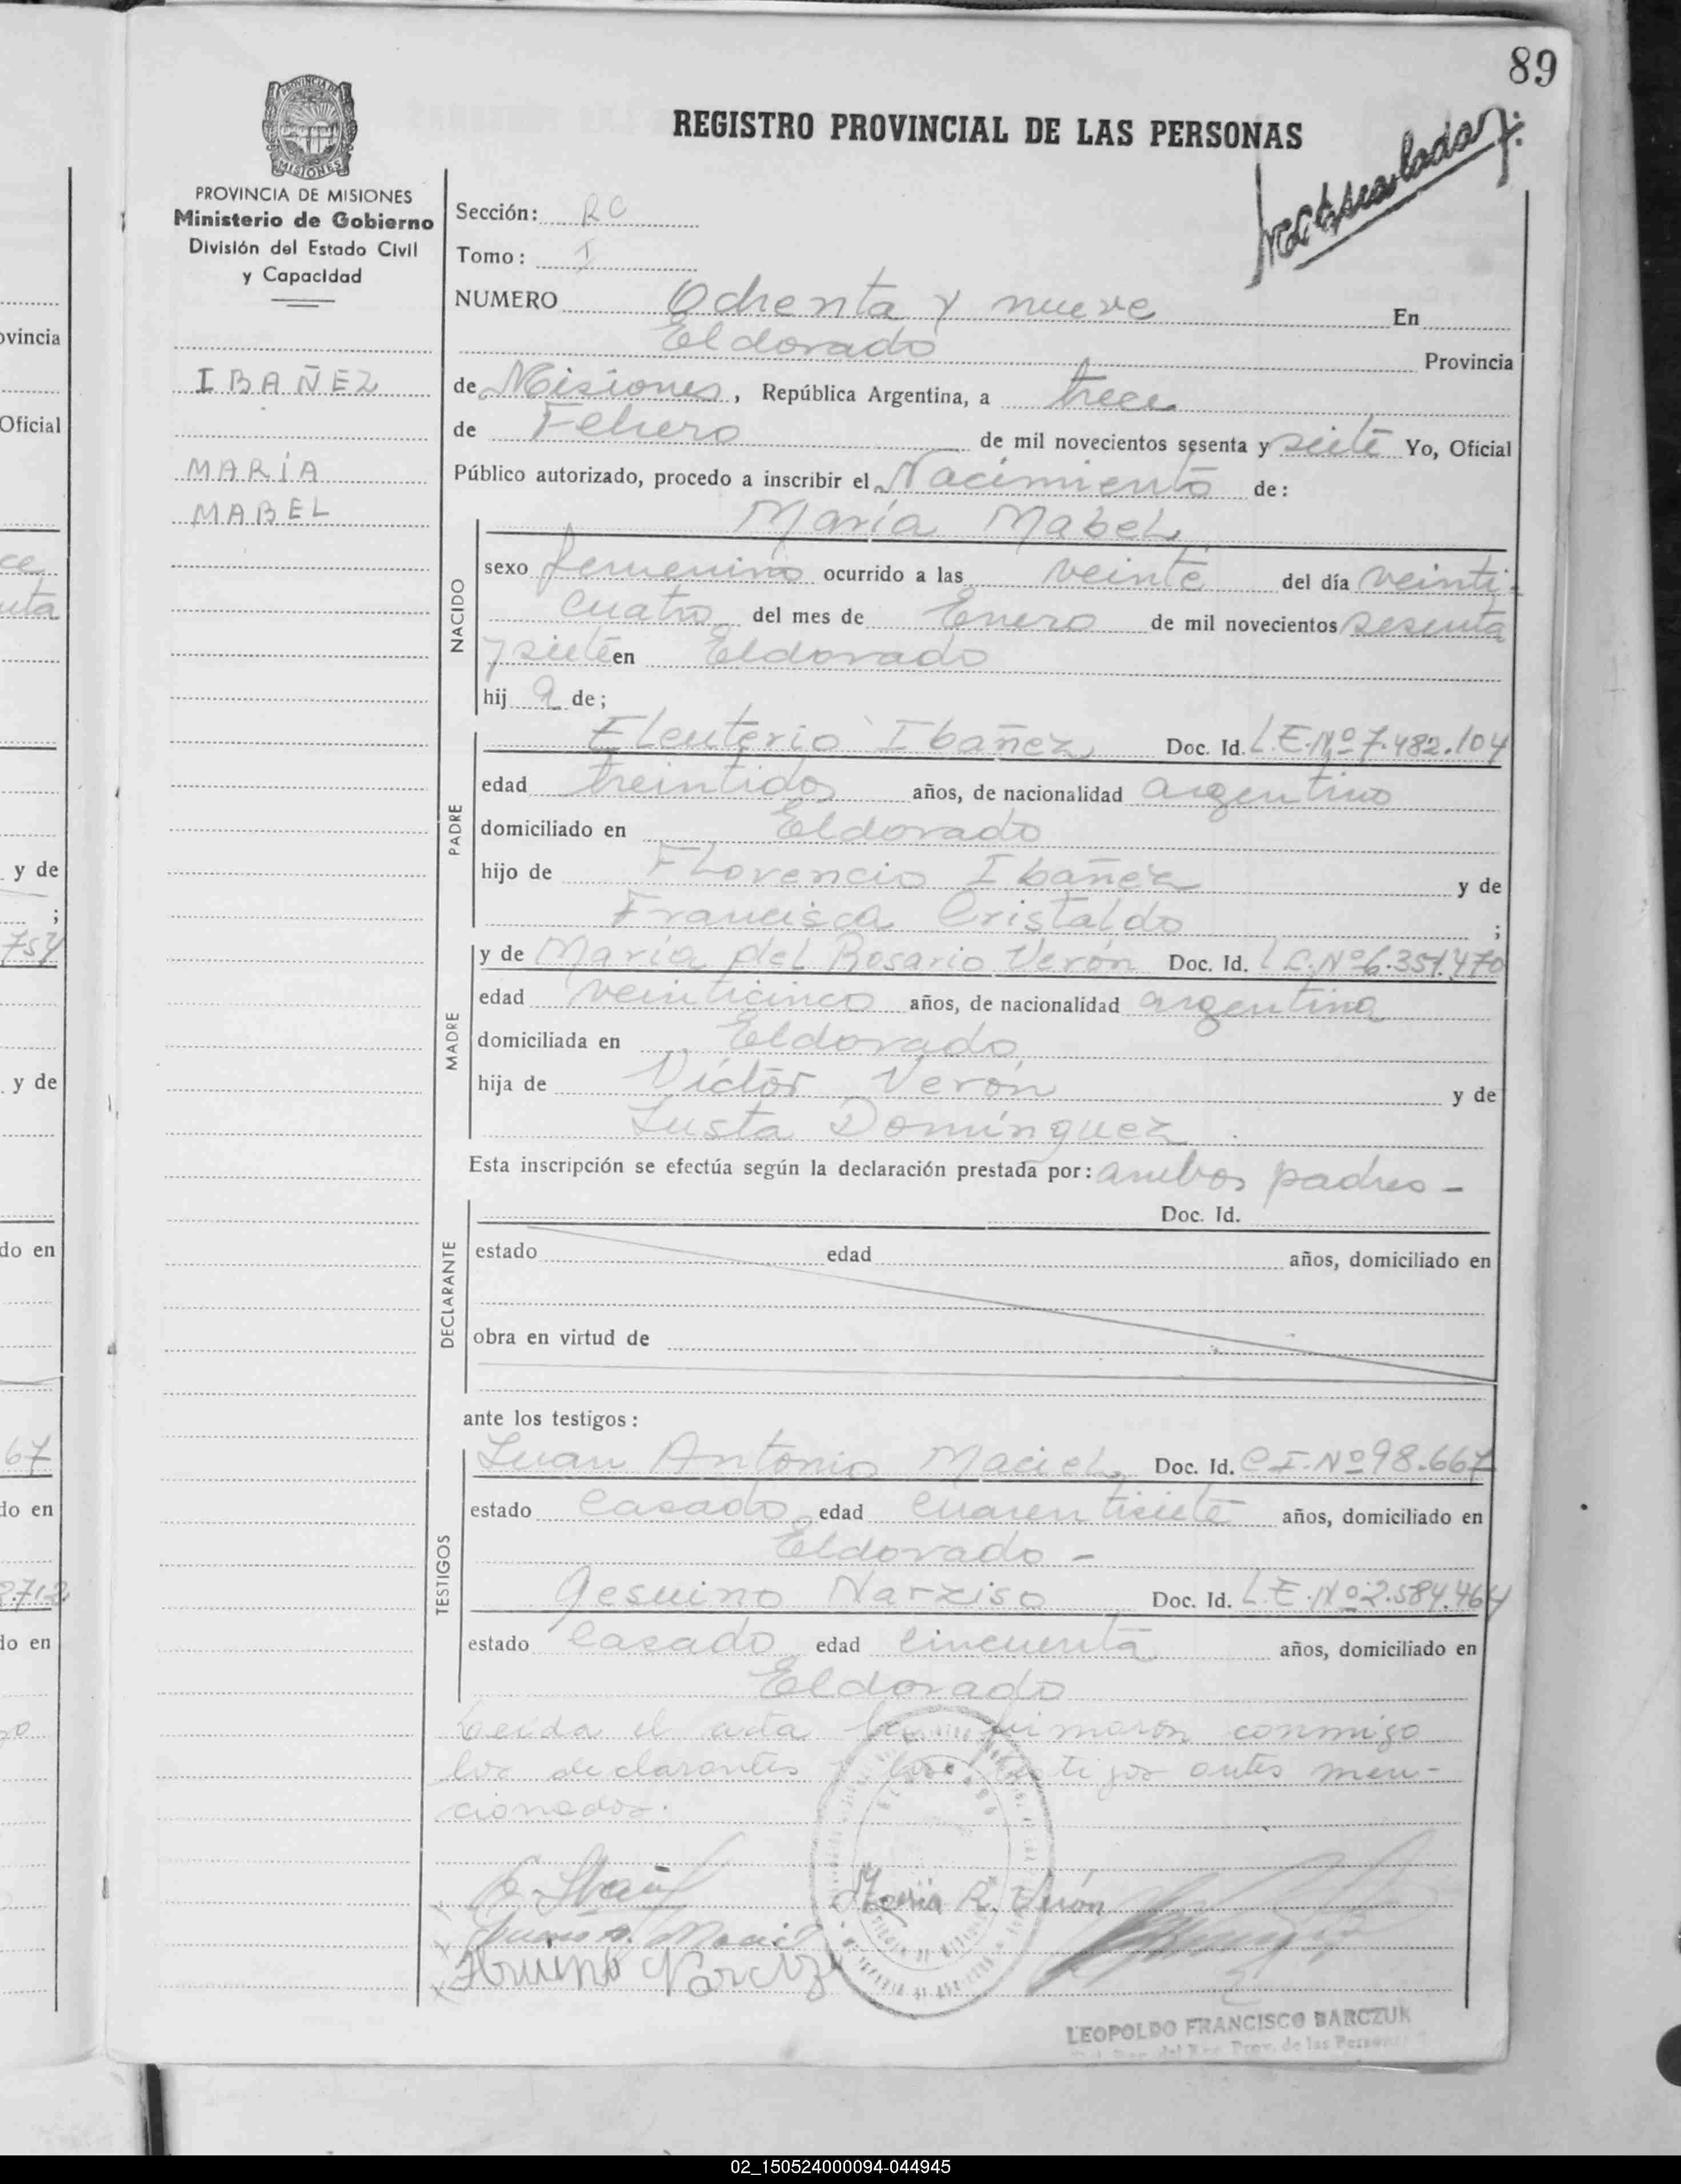 89
REGISTRO PROVINCIAL DE LAS PERSONAS
PROVINCIA DE MISIONES
MISIONES
Ministerio de Gobierno
División del Estado Civil
y Capacidad
IBAÑEZ
MARÍA
MABEL
Sección: RC
Tomo: I
NUMERO Ochenta y nueve En
Eldorado Provincia
de Misiones, República Argentina, a trece
de Febrero de mil novecientos sesenta y siete Yo, Oficial
Público autorizado, procedo a inscribir el Nacimiento de:
María Mabel
NACIDO
sexo femenino ocurrido a las veinte del día veinti-
cuatro del mes de Enero de mil novecientos sesenta
y siete en Eldorado
hij a de;
PADRE
Eleuterio Ibañez Doc. Id. L.E.Nº 7.482.104
edad treintidos años, de nacionalidad argentino
domiciliado en Eldorado
hijo de Florencio Ibañez y de
Francisca Cristaldo ;
MADRE
y de María del Rosario Verón Doc. Id. L.C.Nº 6.351.470
edad veinticinco años, de nacionalidad argentina
domiciliada en Eldorado
hija de Víctor Verón y de
Justa Domínguez.
Esta inscripción se efectúa según la declaración prestada por: ambos padres -
DECLARANTE
Doc. Id.
estado edad años, domiciliado en
obra en virtud de
ante los testigos:
TESTIGOS
Juan Antonio Maciel Doc. Id. C.I.Nº 98.667
estado Casado edad cuarentisiete años, domiciliado en
Eldorado -
Gesuino Narziso Doc. Id. L.E.Nº 2.584.464
estado Casado edad cincuenta años, domiciliado en
Eldorado
Leida el acta la firmaron conmigo
los declarantes y los testigos antes men-
cionados.
María R. Verón
LEOPOLDO FRANCISCO BARCZUK
Prov. de las Personas
ovincia
Oficial
ce
nta
y de
;
757
y de
do en
67
do en
2.712
do en
02_150524000094-044945